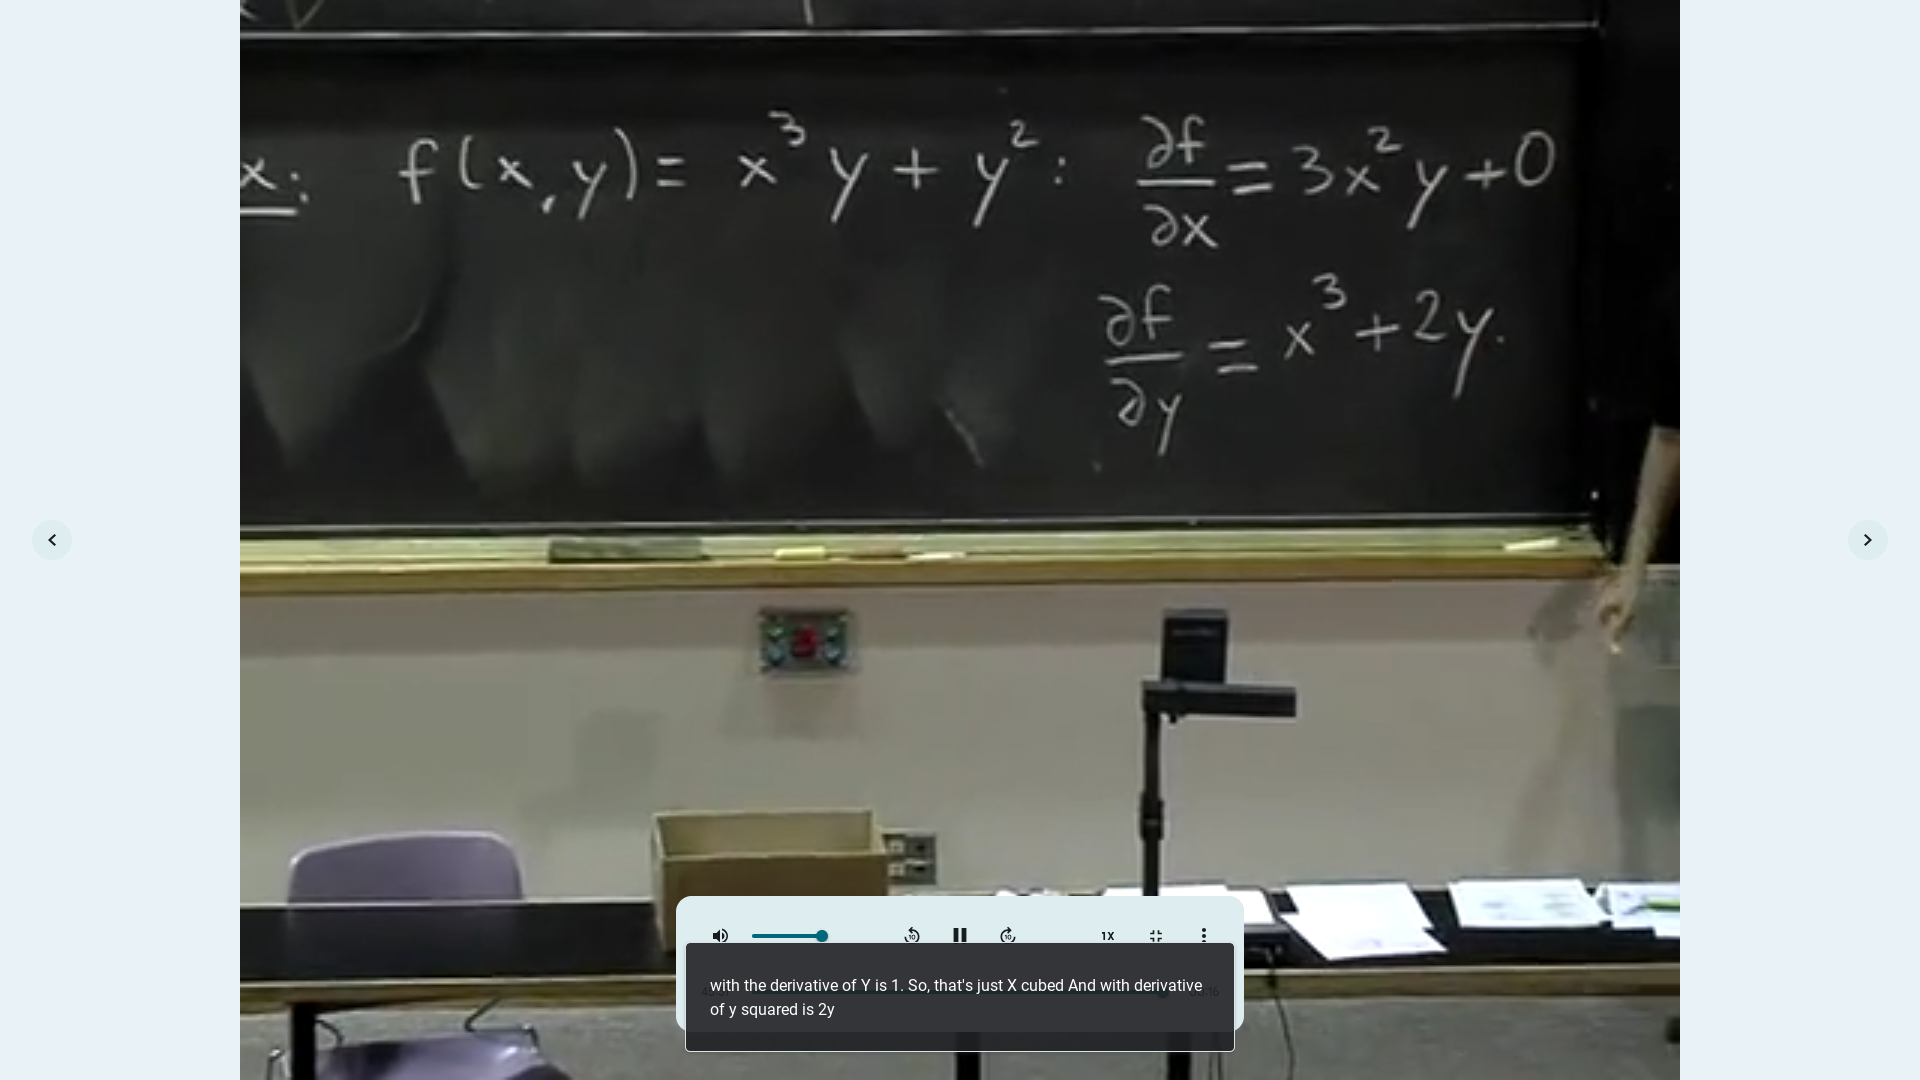 x: f(x,y) = x³y + y² : ∂f/∂x = 3x²y+0
∂f/∂y = x³+2y.
1X
with the derivative of Y is 1. So, that's just X cubed And with derivative
of y squared is 2y